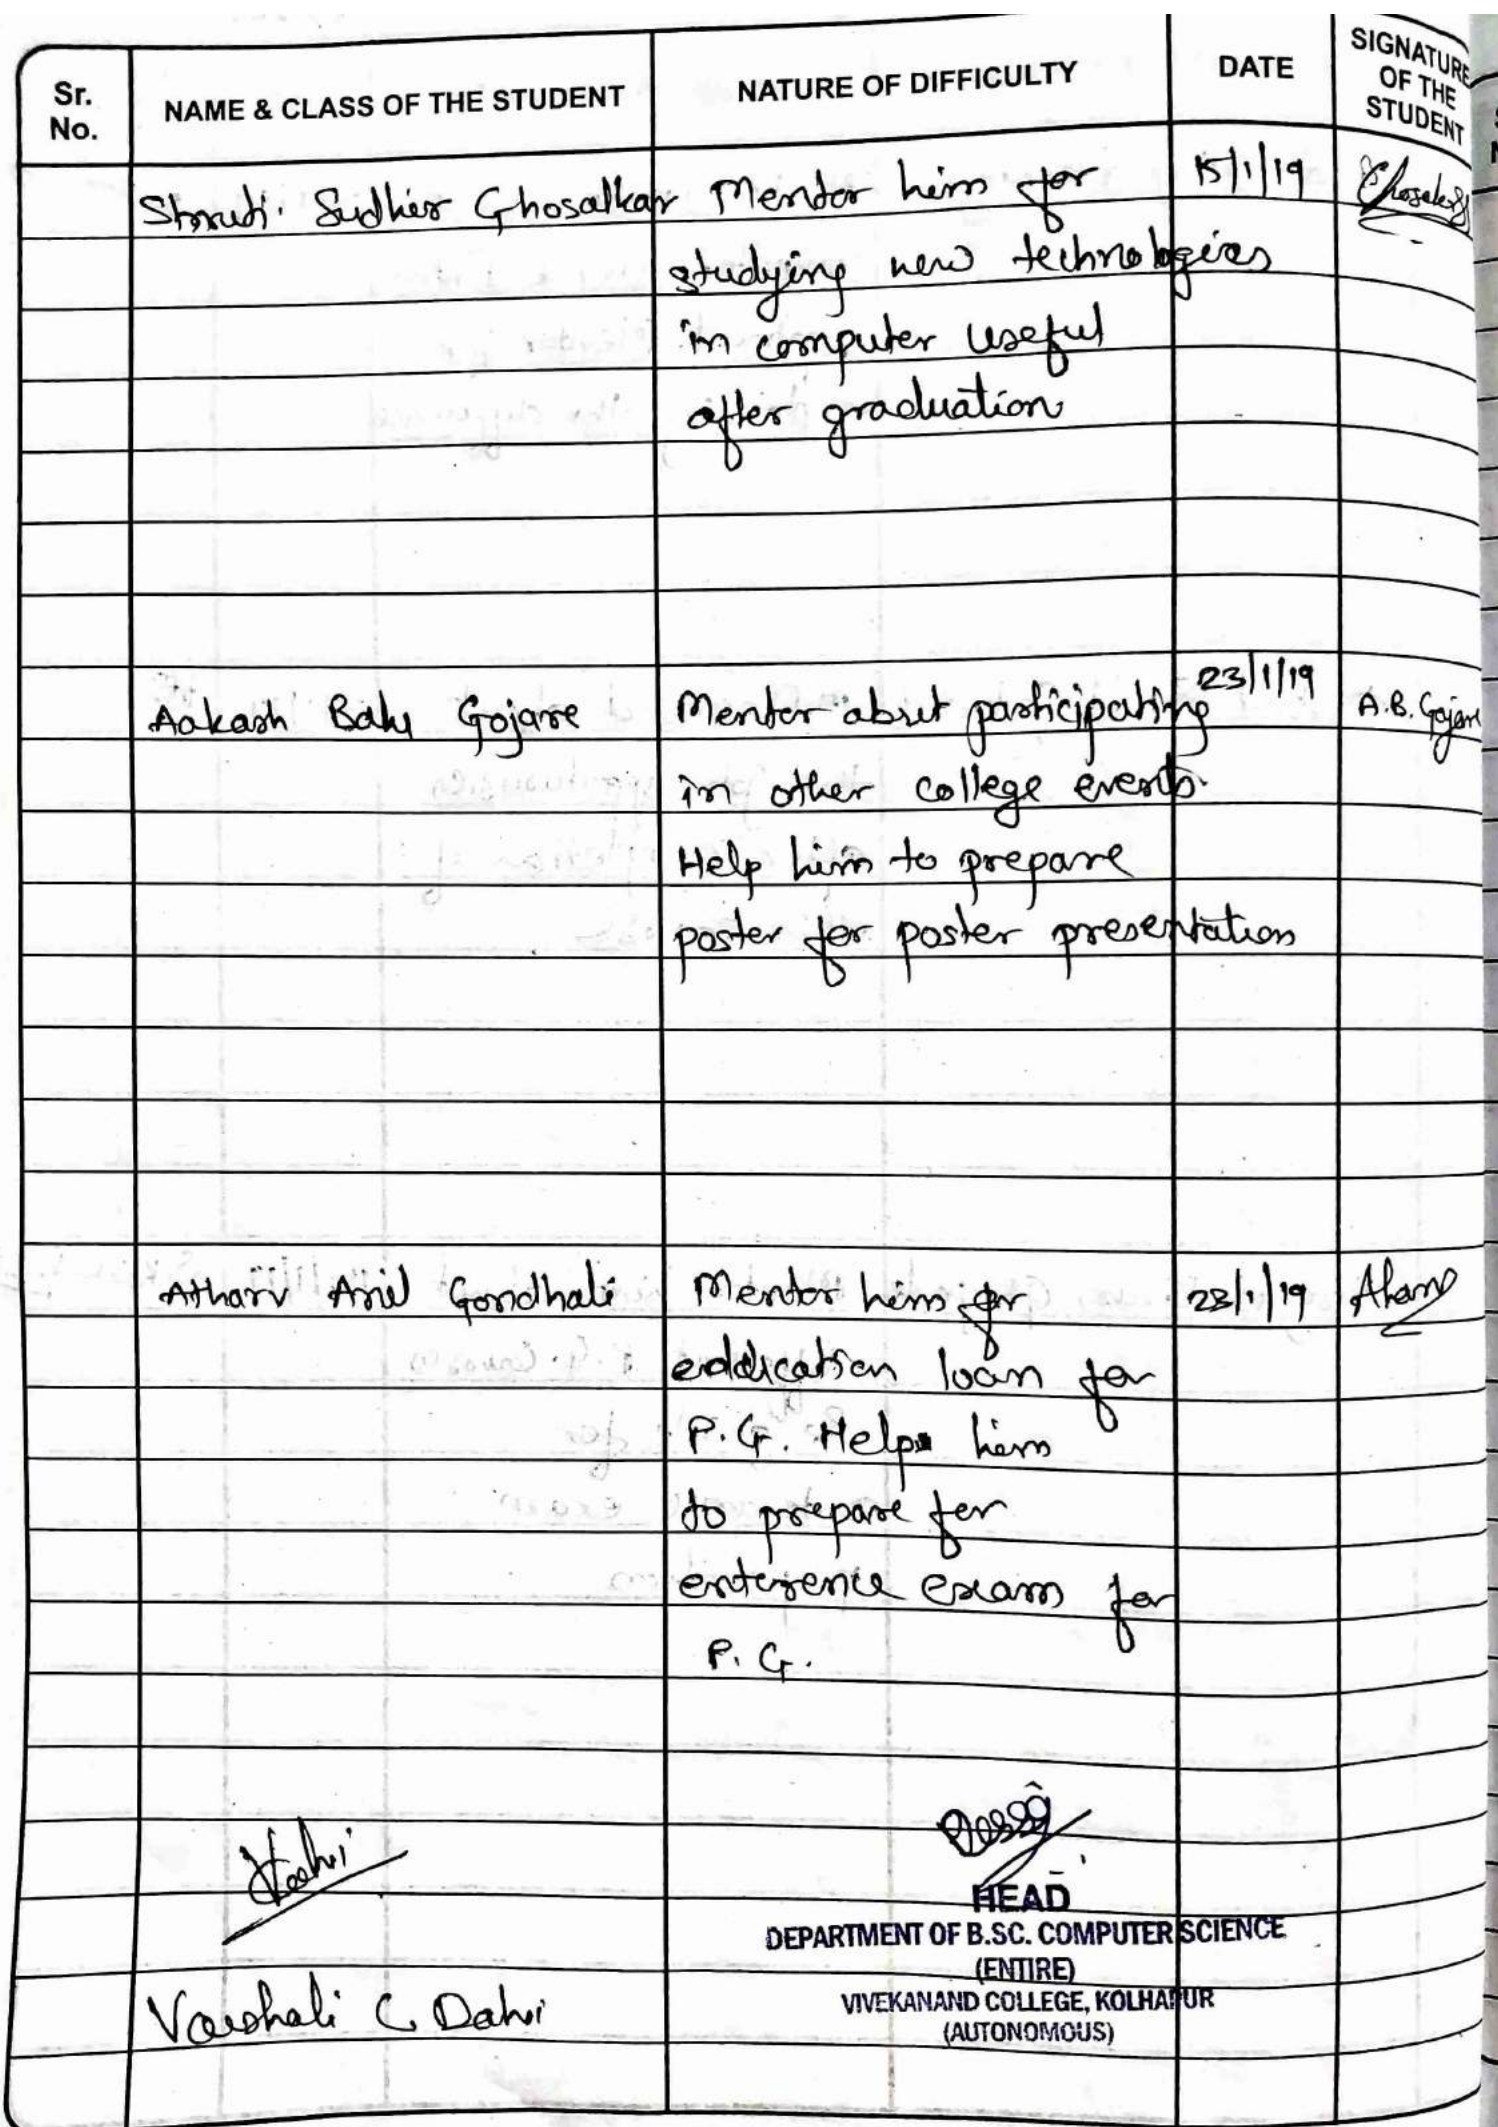 Sr. No.
NAME & CLASS OF THE STUDENT
NATURE OF DIFFICULTY
DATE
SIGNATURE OF THE STUDENT
Shruti. Sudhir Ghosalkar Mentor him for 15/1/19
studying new technologies
in computer useful
after graduation
Aakash Balu Gojare Mentor about participating 23/1/19 A.B. Gojare
in other college events.
Help him to prepare
poster for poster presentation
Atharv Anil Gondhali Mentor him for 28/1/19
eddication loan for
P.G. Help him
to prepare for
enterence exam for
P.G.
HEAD
DEPARTMENT OF B.SC. COMPUTER SCIENCE
(ENTIRE)
VIVEKANAND COLLEGE, KOLHAPUR
(AUTONOMOUS)
Varshali C Dahi